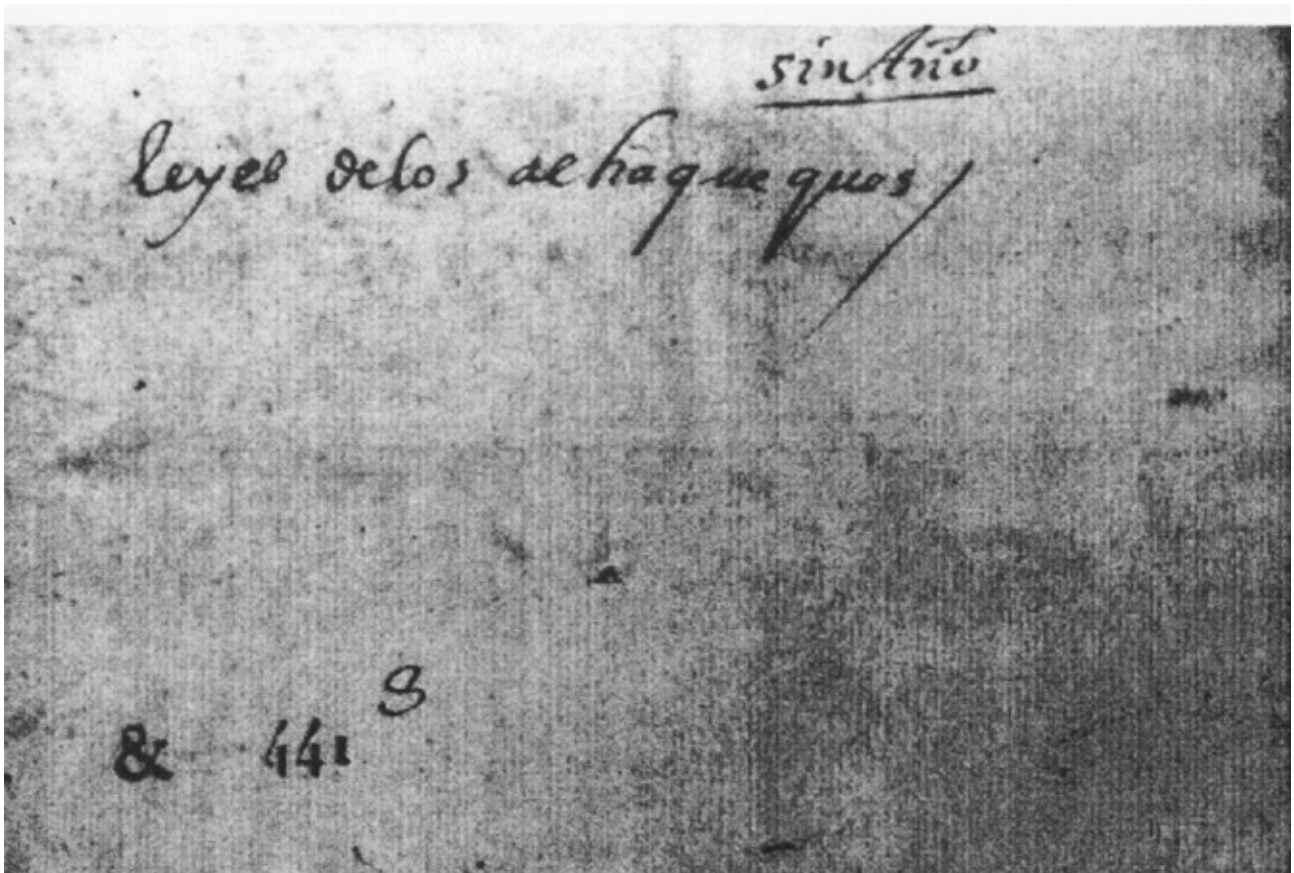 sin Año
leyes delos alhaquequos
8
& 441